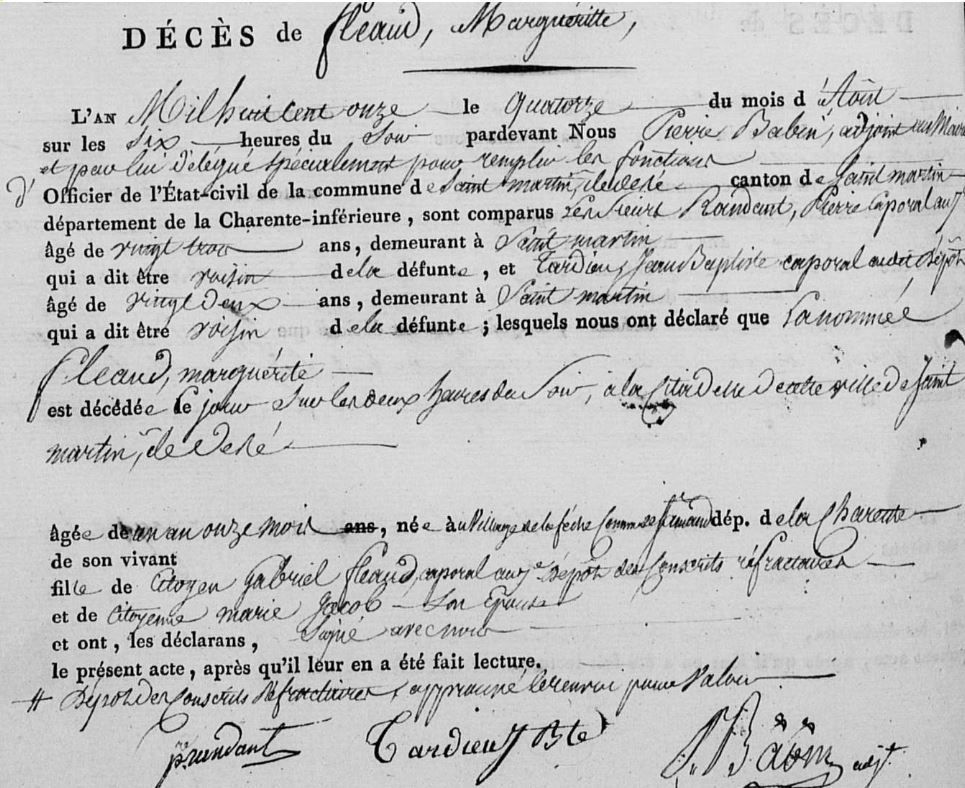 DÉCÈS de fleaud, Marguéritte,
L'AN Mil huit Cent onze le Quatorze du mois d'Aôut
sur les Six heures du Soir pardevant Nous Pierre Babin, adjoint au Maire
et par lui délégué spécialement pour remplir les fonctions
d'Officier de l'État-civil de la commune de Saint martin, ile de Ré canton de Saint martin
département de la Charente-inférieure, sont comparus Les Sieurs Pierre Caporal au
âgé de vingt trois ans, demeurant à Saint martin
qui a dit être voisin de la défunte, et Tardieu, Jean Baptiste caporal audit Dépôt
âgé de vingt Deux ans, demeurant à Saint martin
qui a dit être voisin de la défunte; lesquels nous ont déclaré que La nommée
fleaud, marguérite
est décédée Ce jour Sur les deux heures du Soir, à la Citadelle de cette ville de Saint
martin, ile de Ré
âgée de un an onze mois ans, née au Village de la Commune dép. de la Charente
de son vivant
fille de Citoyen Gabriel fleaud, caporal au Dépôt des Conscrits réfractaires
et de Citoyenne marie Jacob Son Epouse
et ont, les déclarans, Signé avec nous
le présent acte, après qu'il leur en a été fait lecture.
# Dépôt des Conscrits Réfractaires, approuvé le renvoi pour valoir
Tardieu J Bte
P. Babin adjt.